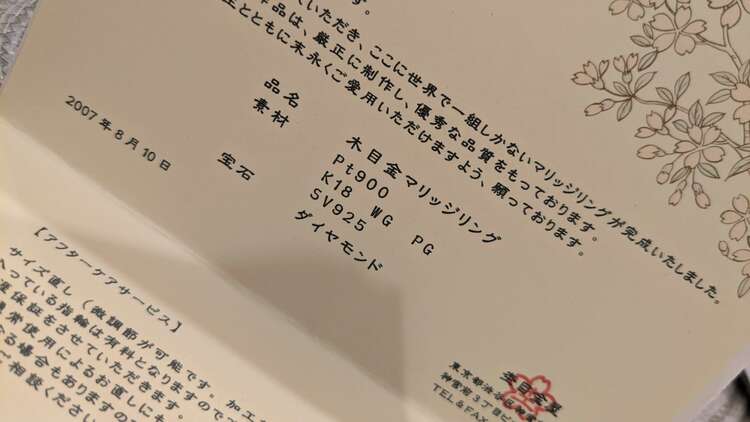 いただき、ここに世界で一組しかないマリッジリングが完成いたしました。
作品は、厳正に制作し、優秀な品質をもっております。
とともに末永くご愛用いただけますよう、願っております。
品名 木目金マリッジリング
素材 Pt900
K18 WG PG
SV925
宝石 ダイヤモンド
2007年8月10日
【アフターケアサービス】
サイズ直し（微調節が可能です。加工
っている指輪は有料となりますので
保証をさせていただきます。
常使用によるお直しにも
る場合もありますので
相談ください
杢目金屋
東京都渋谷区神
神宮前3丁目ビ
TEL&FAX